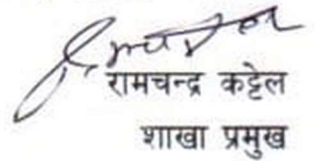 रामचन्द्र कट्टेल
शाखा प्रमुख